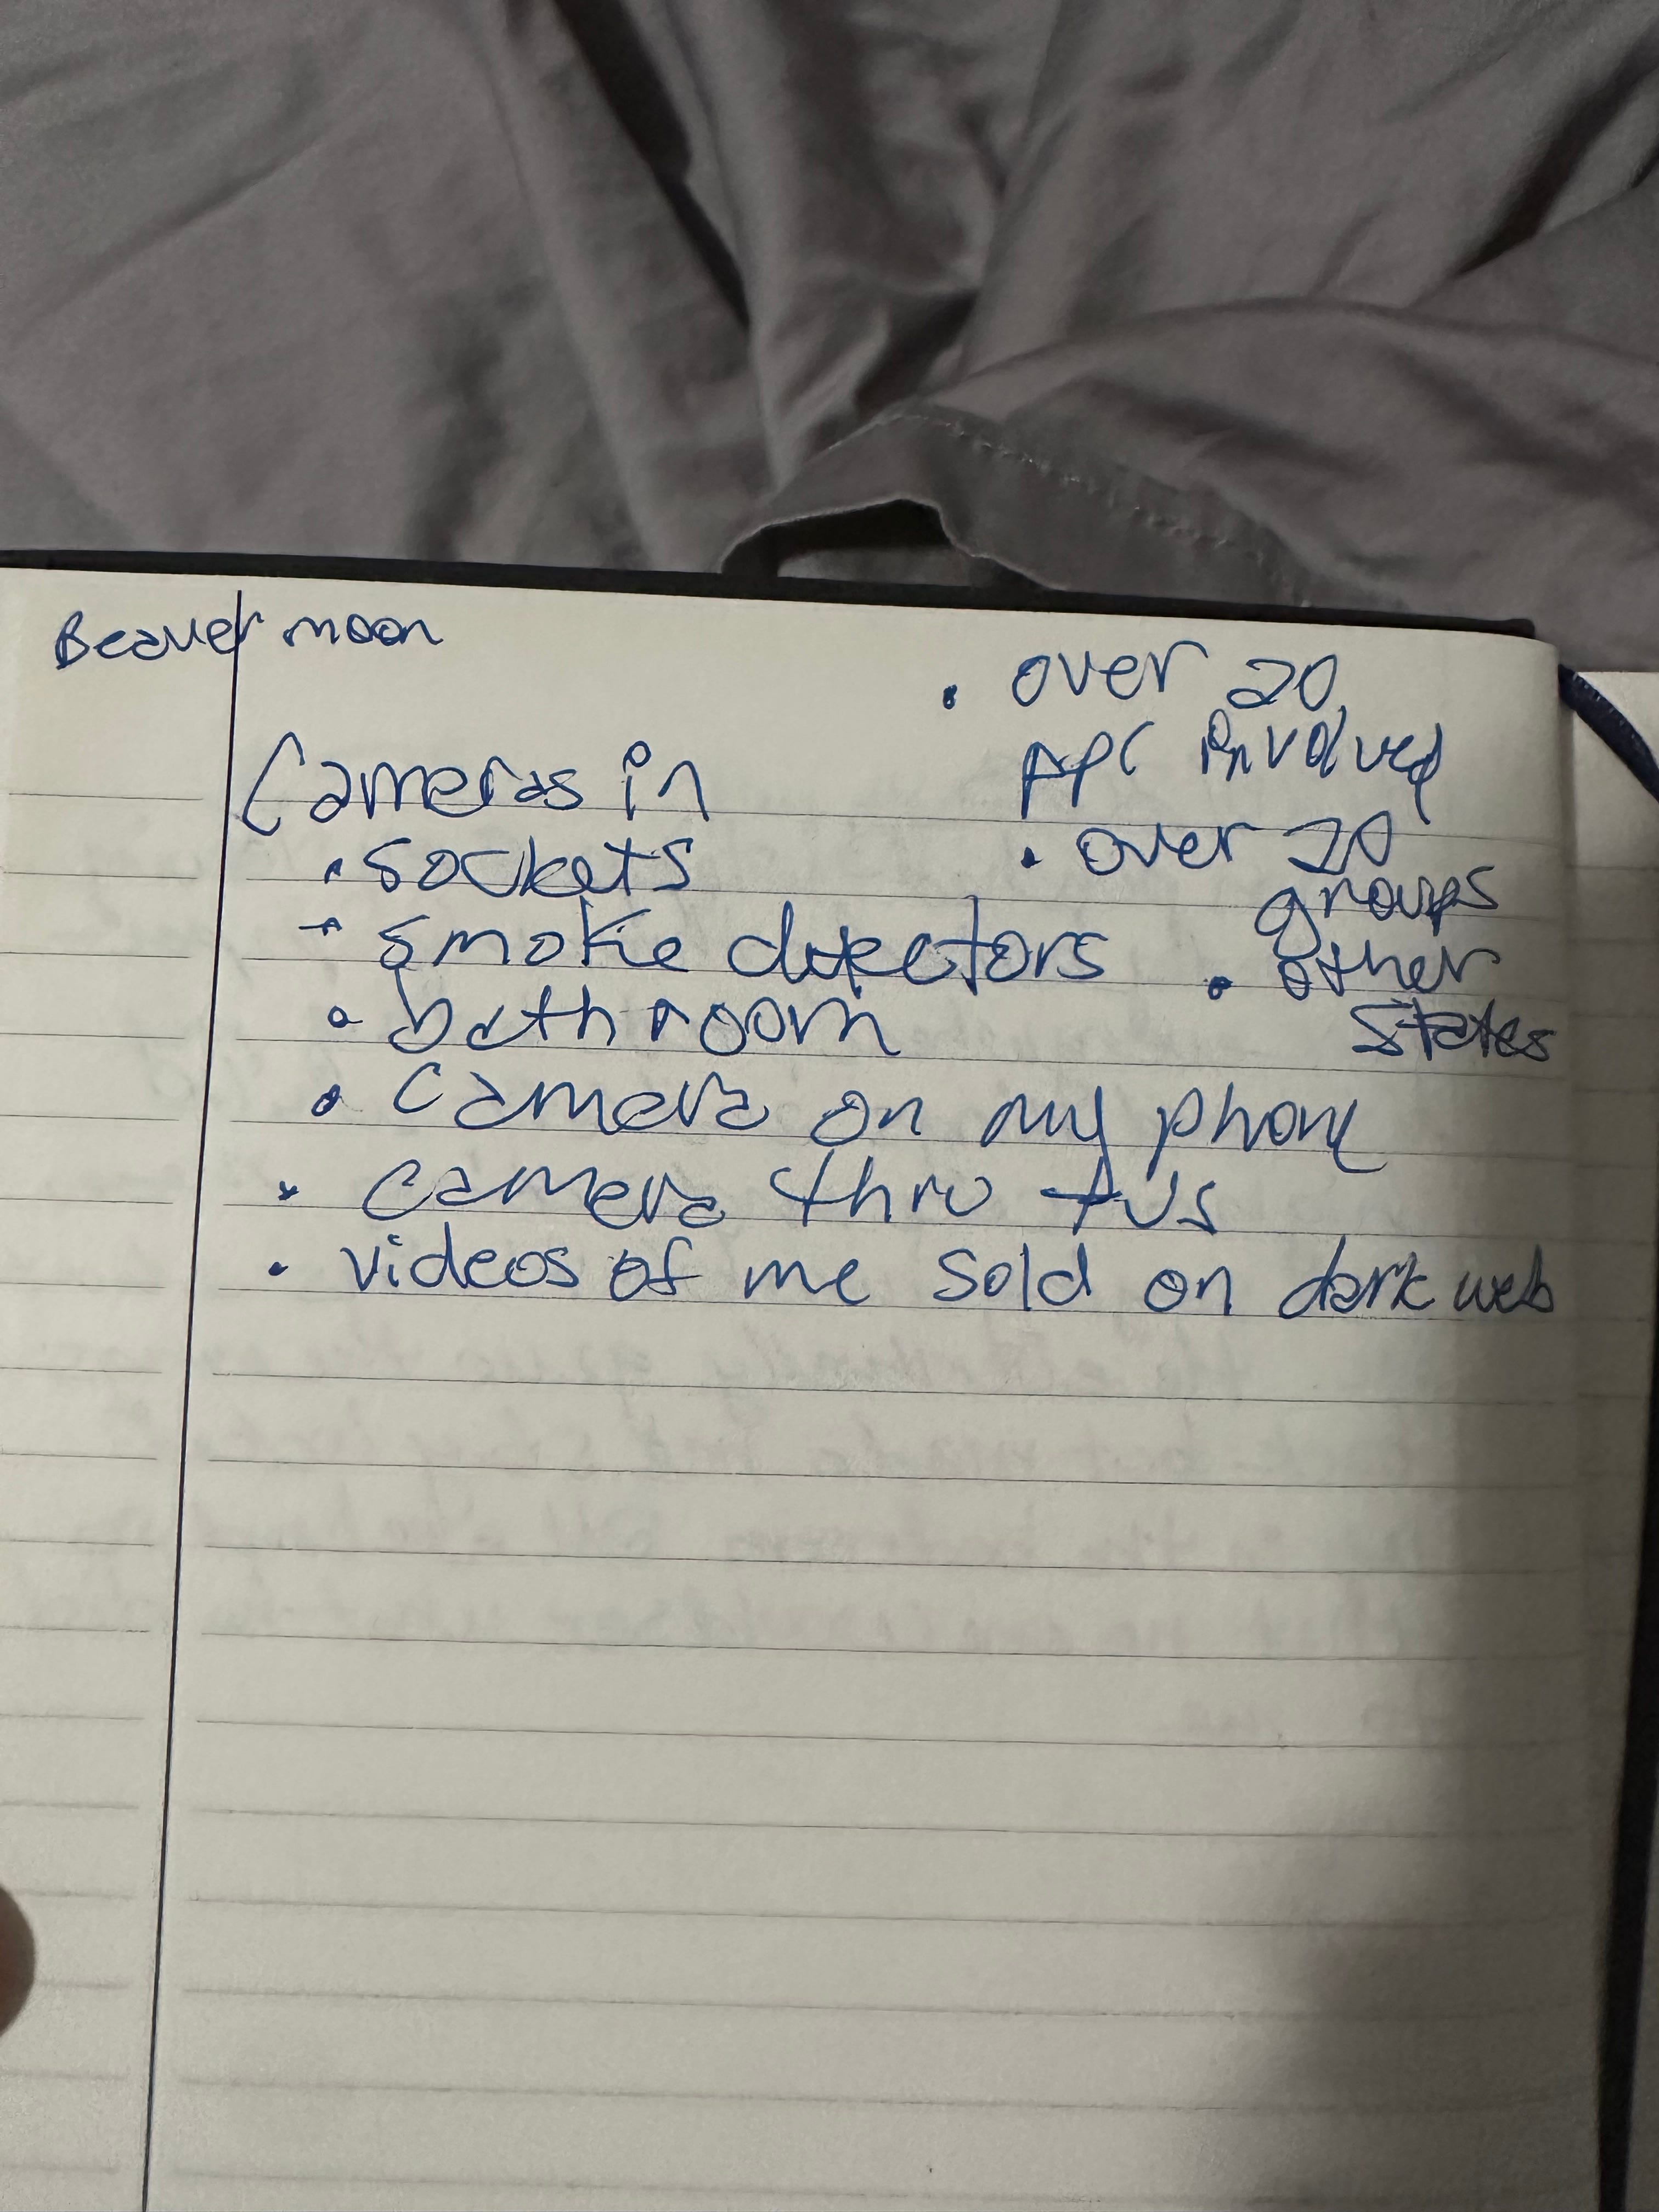 Beaver moon
Cameras in
• sockets
• smoke detectors
• bathroom
• camera on my phone
• camera thru tvs
• videos of me sold on dark web
• over 20
involved
• over 20
groups
• other
states